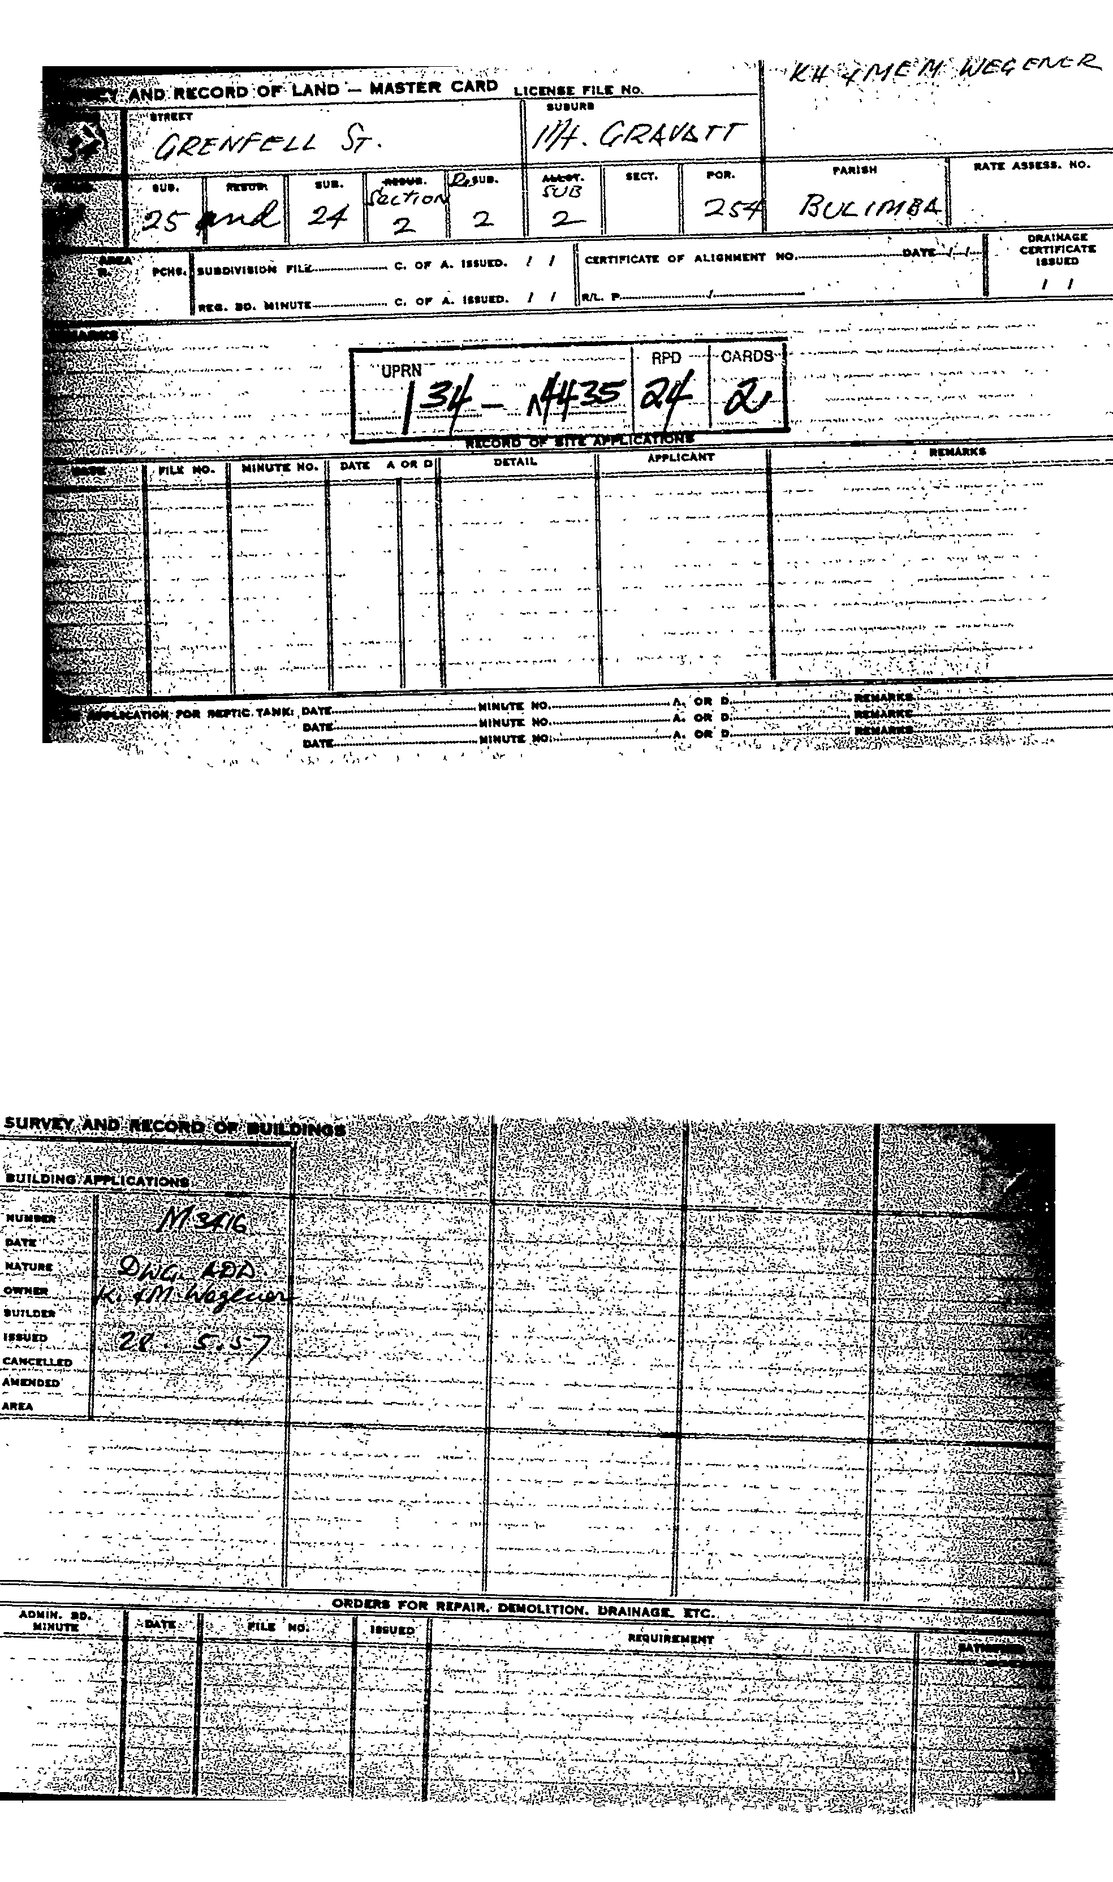 KH & MEM WEGENER
AND RECORD OF LAND — MASTER CARD LICENSE FILE No.
STREET SUBURB
34 GRENFELL ST. Mt. GRAVATT
SUB. RESUB. SUB. RESUB. Section Re SUB. ALLOT. SUB SECT. POR. PARISH RATE ASSESS. NO.
25 and 24 2 2 2 254 BULIMBA
AREA PCHS. SUBDIVISION FILE C. OF A. ISSUED. / / CERTIFICATE OF ALIGNMENT NO. DATE / / DRAINAGE CERTIFICATE ISSUED
R. REG. BD. MINUTE C. OF A. ISSUED. / / R/L. P. / / /
REMARKS
UPRN RPD CARDS
134 - 4435 24 2
RECORD OF SITE APPLICATIONS
DATE FILE NO. MINUTE NO. DATE A OR D DETAIL APPLICANT REMARKS
APPLICATION FOR SEPTIC TANK: DATE MINUTE NO. A. OR D. REMARKS
DATE MINUTE NO. A. OR D. REMARKS
DATE MINUTE NO. A. OR D. REMARKS
SURVEY AND RECORD OF BUILDINGS
BUILDING APPLICATIONS
NUMBER M3416
DATE
NATURE DWG. ADD
OWNER K. & M. Wegener
BUILDER
ISSUED 28. 5.57
CANCELLED
AMENDED
AREA
ORDERS FOR REPAIR, DEMOLITION, DRAINAGE, ETC.
ADMIN. BD. MINUTE DATE FILE NO. ISSUED REQUIREMENT